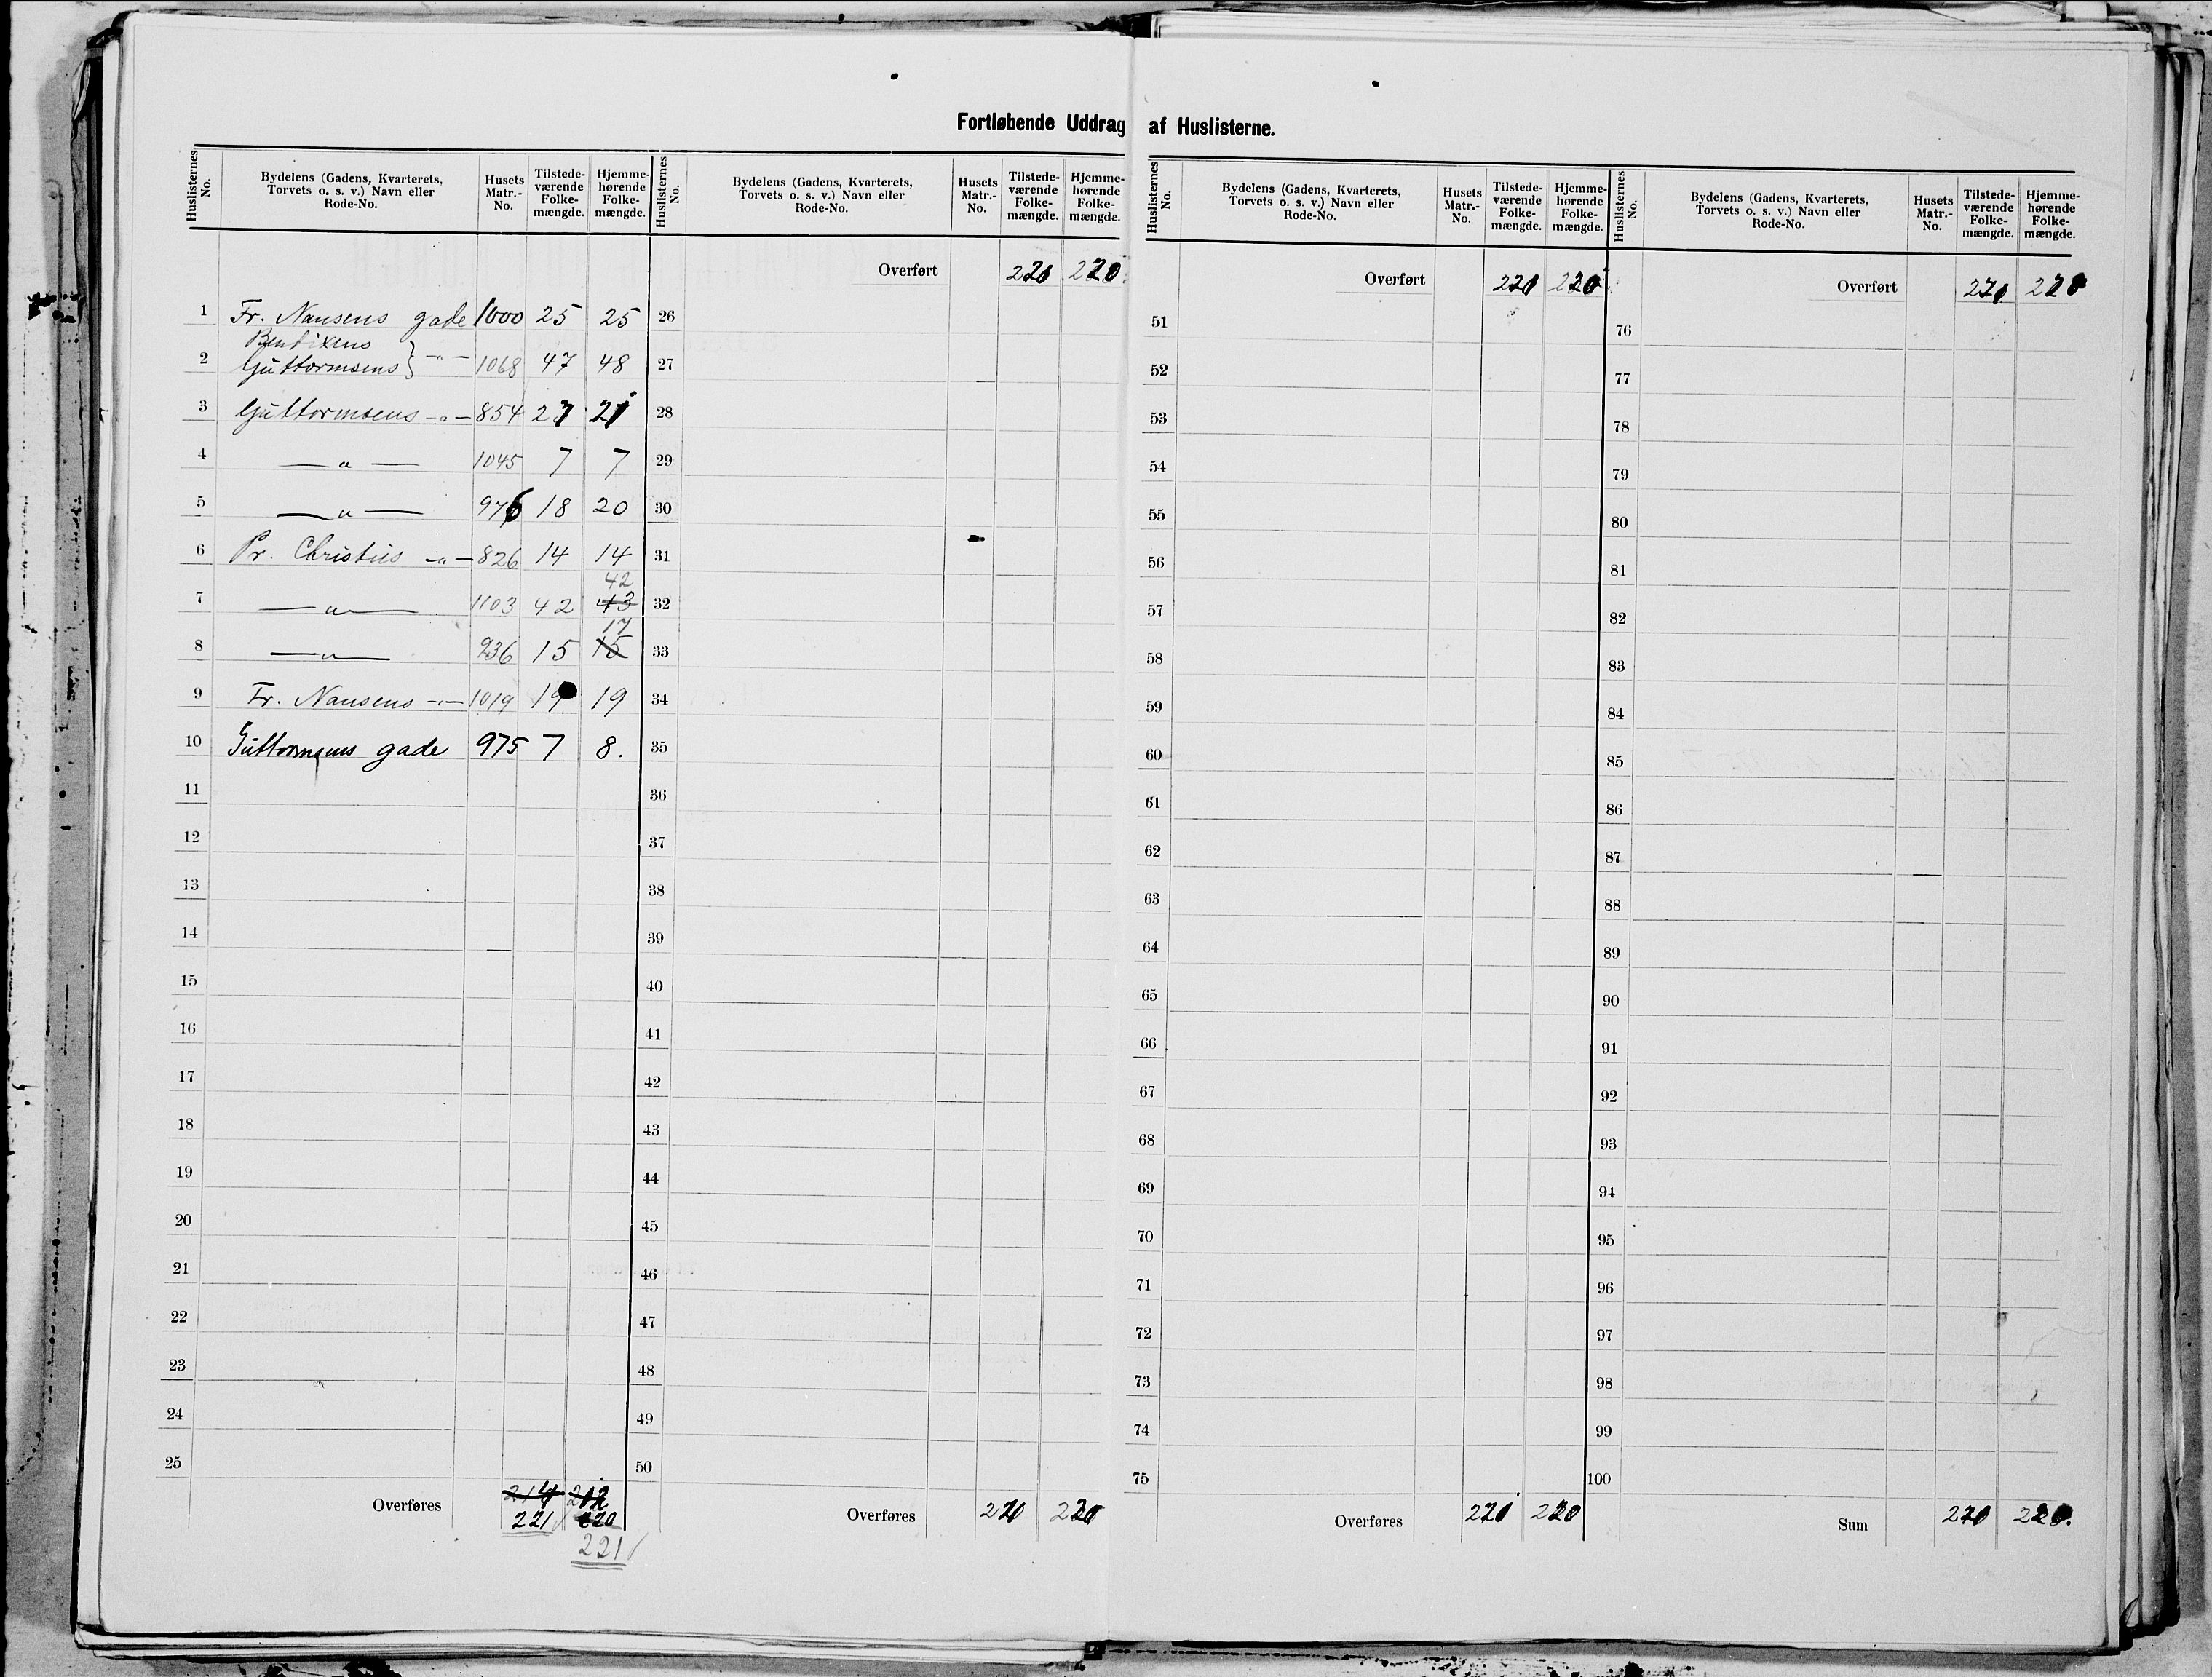 Fortløbende Uddrag af Huslisterne.
Huslisternes No. Bydelens (Gadens, Kvarterets, Torvets o. s. v.) Navn eller Rode-No. Husets Matr.-No. Tilstedeværende Folkemængde. Hjemmehørende Folkemængde.
1 Fr. Nansens gade 1000 25 25
Bendixens
2 Guttormsens } -"- 1068 47 48
3 Guttormsens -"- 854 27 21
4 -"- 1045 7 7
5 -"- 976 18 20
6 Pr. Christies -"- 826 14 14
42
7 -"- 1103 42 43
17
8 -"- 936 15 15
9 Fr. Nansens -"- 1019 19 19
10 Guttormsens gade 975 7 8.
11
12
13
14
15
16
17
18
19
20
21
22
23
24
25
214 212
Overføres 221 220
221
Huslisternes No. Bydelens (Gadens, Kvarterets, Torvets o. s. v.) Navn eller Rode-No. Husets Matr.-No. Tilstedeværende Folkemængde. Hjemmehørende Folkemængde.
Overført 220 220
26
27
28
29
30
31
32
33
34
35
36
37
38
39
40
41
42
43
44
45
46
47
48
49
50
Overføres 220 220
Huslisternes No. Bydelens (Gadens, Kvarterets, Torvets o. s. v.) Navn eller Rode-No. Husets Matr.-No. Tilstedeværende Folkemængde. Hjemmehørende Folkemængde.
Overført 220 220
51
52
53
54
55
56
57
58
59
60
61
62
63
64
65
66
67
68
69
70
71
72
73
74
75
Overføres 220 220
Huslisternes No. Bydelens (Gadens, Kvarterets, Torvets o. s. v.) Navn eller Rode-No. Husets Matr.-No. Tilstedeværende Folkemængde. Hjemmehørende Folkemængde.
Overført 220 220
76
77
78
79
80
81
82
83
84
85
86
87
88
89
90
91
92
93
94
95
96
97
98
99
100
Sum 220 220.